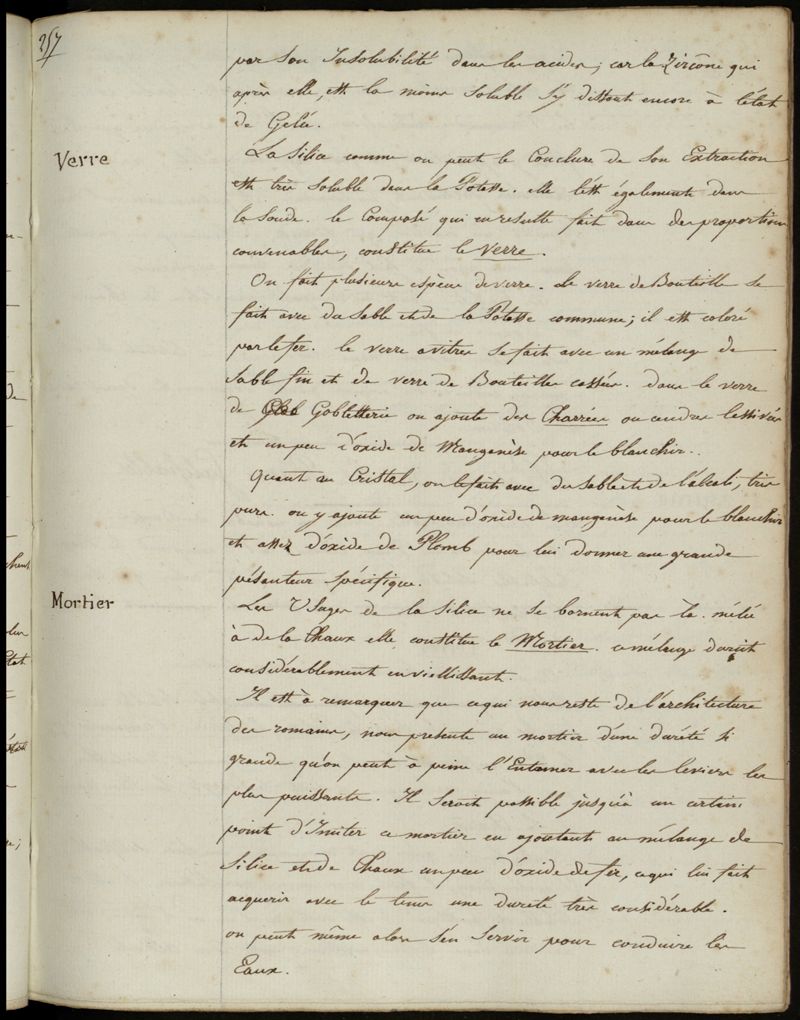 257
par son Insolubilité dans les acides; car la Zircône qui
après elle, est la moins soluble s'y dissout encore à l'état
de Gelée.
Verre
La Silice comme on peut le Conclure de son Extraction
est très soluble dans la Potasse. elle l'est également dans
la Soude. le Composé qui en resulte fait dans des proportions
convenables, constitue le Verre.
On fait plusieurs espèces de verre. Le verre de Bouteille se
fait avec du Sable et de la Potasse commune; il est coloré
par le fer. le verre a vitres se fait avec un mélange de
Sable fin et de verre de Bouteilles cassées. dans le verre
de Gobletterie on ajoute des Charrées ou cendres lessivées
et un peu d'oxide de Manganèse pour le blanchir.
Quant au Cristal, on le fait avec du sable et de l'alcali, très
purs. on y ajoute un peu d'oxide de manganèse pour le blanchir
et assez d'oxide de Plomb pour lui donner une grande
pésanteur spécifique.
Mortier
Les Usages de la Silice ne se bornent pas là. mélée
à de la Chaux elle constitue le Mortier. ce mélange durcit
considérablement en vieillissant.
Il est à remarquer que ce qui nous reste de l'architecture
des romains, nous présente un mortier d'une dureté si
grande qu'on peut à peine l'Entamer avec les leviers les
plus puissants. Il Serait possible jusqu'à un certain
point d'Imiter ce mortier en ajoutant au mélange de
Silice et de Chaux un peu d'oxide de fer, ce qui lui fait
acquerir avec le tems une dureté très considérable.
on peut même alors s'en Servir pour conduire les
Eaux.